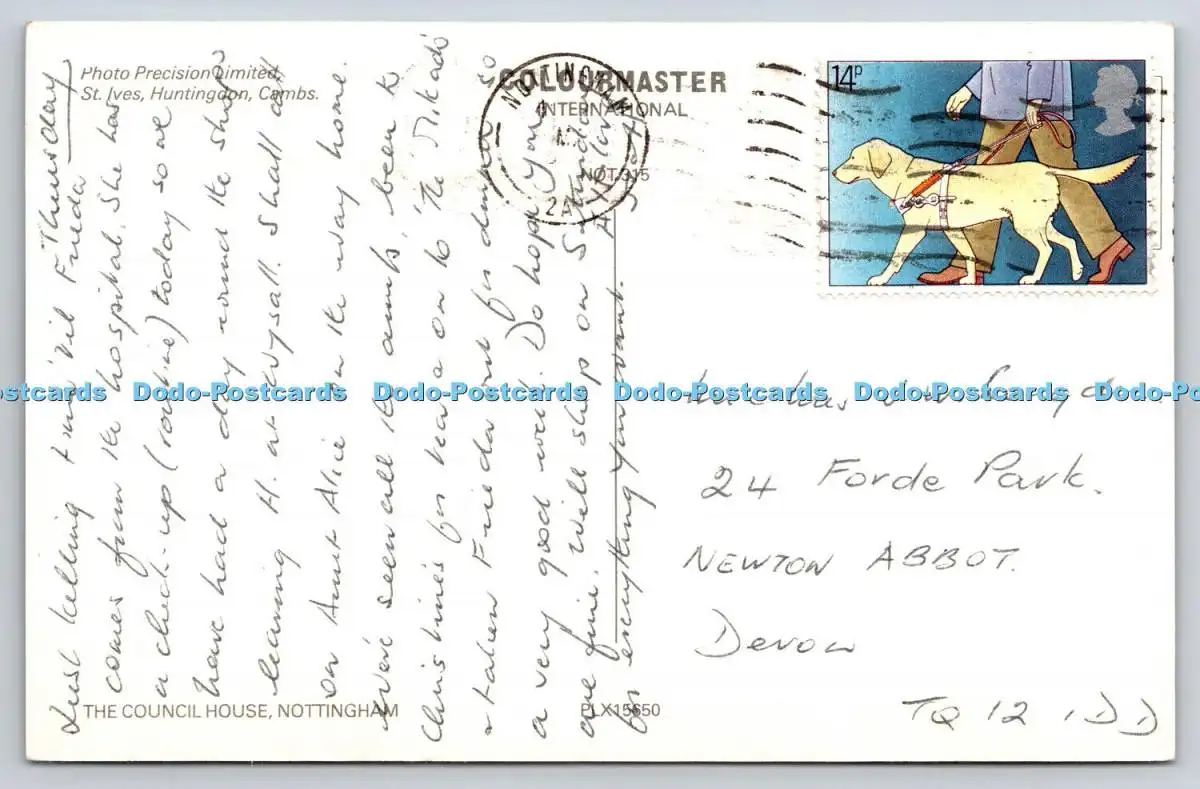 Photo Precision Limited,
St. Ives, Huntingdon, Cambs.
COLOURMASTER
INTERNATIONAL
NOT.315
NOTTINGHAM
14P
Thursday
Just killing time 'til Freda
comes from the hospital. She has
a check-up (routine) today so we
have had a day round the shops
leaving H. at Wysall. Shall call
on Aunt Alice on the way home.
We've seen all the aunts, been to
Christine's for tea & on to 'The Mikado'
& taken Frieda out for dinner so
a very good week. Do hope you
are fine. Will shop on Saturday
for everything you want.
24 Forde Park.
NEWTON ABBOT.
Devon
TQ 12 1DD
THE COUNCIL HOUSE, NOTTINGHAM
PLX15650
Dodo-Postcards Dodo-Postcards Dodo-Postcards Dodo-Postcards Dodo-Postcards